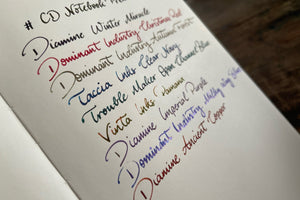 # CD Notebook
Diamine Winter Miracle
Dominant Industry Christmas Red
Dominant Industry Autumn Forest
Taccia Inks Navy
Trouble Maker Blue
Vinta Inks
Diamine Imperial Purple
Dominant Industry Milky Way
Diamine Ancient Copper